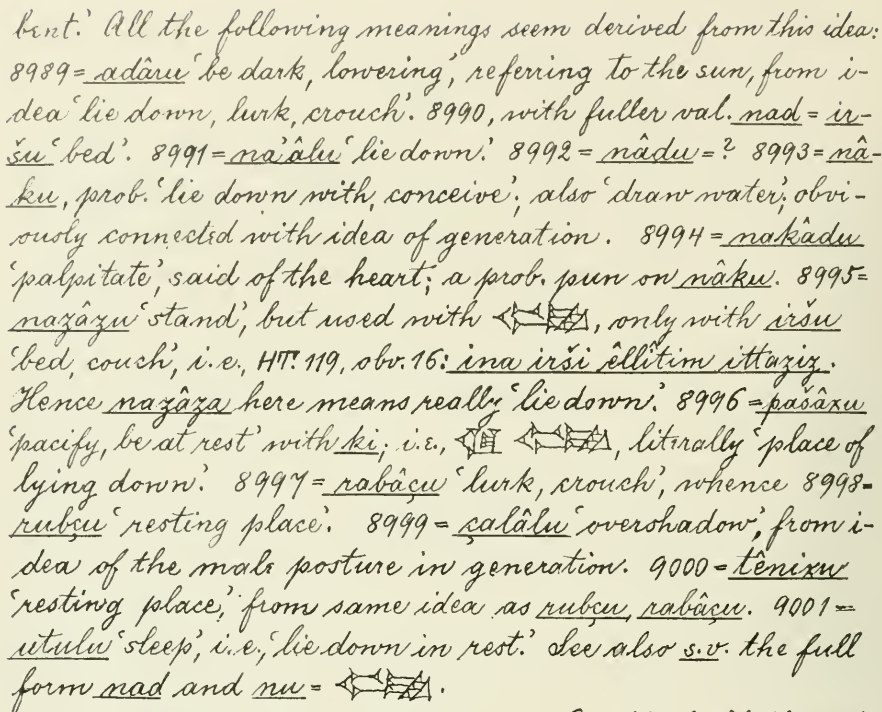 bent.' All the following meanings seem derived from this idea:
8989 = adâru 'be dark, lowering', referring to the sun, from i-
dea 'lie down, lurk, crouch'. 8990, with fuller val. nad = ir-
šu 'bed'. 8991 = na'âlu 'lie down.' 8992 = nâdu = ? 8993 = nâ-
ku, prob. 'lie down with, conceive'; also 'draw water'; obvi-
ously connected with idea of generation. 8994 = nakâdu
'palpitate', said of the heart; a prob. pun on nâku. 8995 =
nazâzu 'stand', but used with , only with iršu
'bed, couch', i.e., HT. 119, obv. 16: ina irši êllîtim ittaziz.
Hence nazâza here means really 'lie down.' 8996 = pašâxu
'pacify, be at rest' with ki; i.e., , literally 'place of
lying down.' 8997 = rabâçu 'lurk, crouch', whence 8998 =
rubçu 'resting place'. 8999 = çalâlu 'overshadow', from i-
dea of the male posture in generation. 9000 = tênixu
'resting place,' from same idea as rubçu, rabâçu. 9001 =
utulu 'sleep', i.e., 'lie down in rest.' See also s.v. the full
form nad and nu = .